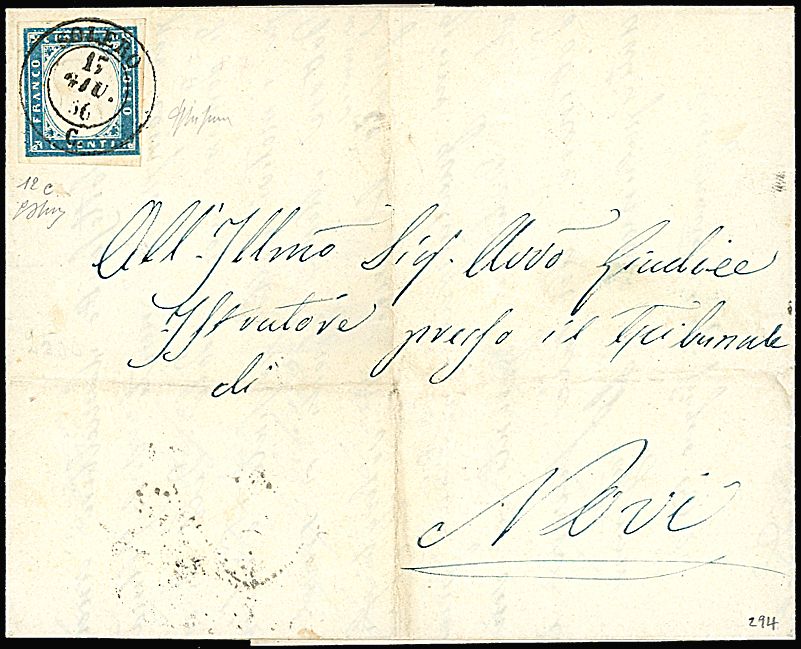 FRANCO
15
GIU.
56
C
CENTI
12 c.
All'Illmo Sig. Avvo Giudice
Istruttore presso il Tribunale
di
Novi
294